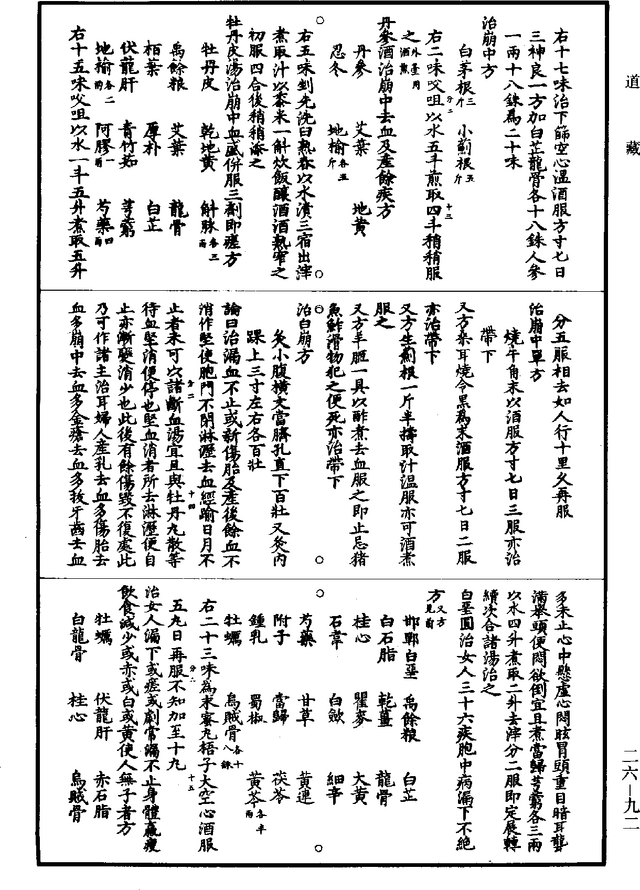 道藏
右十七味治下篩空心温酒服方寸匕日
三神良一方加白芷龍骨各十八銖人參
一兩十八銖為二十味
治崩中方
白茅根三斤 小薊根五斤
右二味㕮咀以水五斗煎取四斗稍稍服
之外臺用酒煎
丹參酒治崩中去血及產餘疾方
丹參 艾葉 地黄
忍冬 地榆各五斤
右五味剉先洗臼熟舂以水漬三宿出滓
煮取汁以黍米一斛炊飯釀酒酒熟窄之
初服四合後稍稍添之
牡丹皮湯治崩中血盛併服三劑即瘥方
牡丹皮 乾地黄 斛脉各三兩
禹餘粮 艾葉 龍骨
栢葉 厚朴 白芷
伏龍肝 青竹茹 芎藭
地榆各二兩 阿膠一兩 芍藥四兩
右十五味㕮咀以水一斗五升煮取五升
分五服相去如人行十里久再服
治崩中單方
燒牛角末以酒服方寸匕日三服亦治
帶下
又方桑耳燒令黑為末酒服方寸匕日二服
亦治帶下
又方生薊根一斤半擣取汁温服亦可酒煮
服之
又方羊胵一具以酢煮去血服之即止忌猪
魚鮓滑物犯之便死亦治帶下
治白崩方
灸小腹横文當臍孔直下百壯又灸内
踝上三寸左右各百壯
論曰治漏血不止或新傷胎及產後餘血不
消作堅使胞門不閉淋瀝去血經踰日月不
止者未可以諸斷血湯宜且與牡丹丸散等
待血堅消便停也堅血消者所去淋瀝便自
止亦漸變消少也此後有餘傷毁不復處此
乃可作諸主治耳婦人產乳去血多傷胎去
血多崩中去血多金瘡去血多拔牙齒去血
多未止心中懸虚心悶眩冒頭重目暗耳聾
滿舉頭便悶欲倒宜且煮當歸芎藭各三兩
以水四升煮取二升去滓分二服即定展轉
續次合諸湯治之
白堊圓治女人三十六疾胞中病漏下不絶
方又方見前
邯鄲白堊 禹餘粮 白芷
白石脂 乾薑 龍骨
桂心 瞿麥 大黄
石韋 白蘞 細辛
芍藥 甘草 黄連
附子 當歸 茯苓
鍾乳 蜀椒 黄芩各半兩
牡蠣 烏賊骨各十八銖
右二十三味為末蜜丸梧子大空心酒服
五丸日再服不知加至十丸
治女人漏下或瘥或劇常漏不止身體羸瘦
飲食減少或赤或白或黄使人無子者方
牡蠣 伏龍肝 赤石脂
白龍骨 桂心 烏賊骨
二六—九二